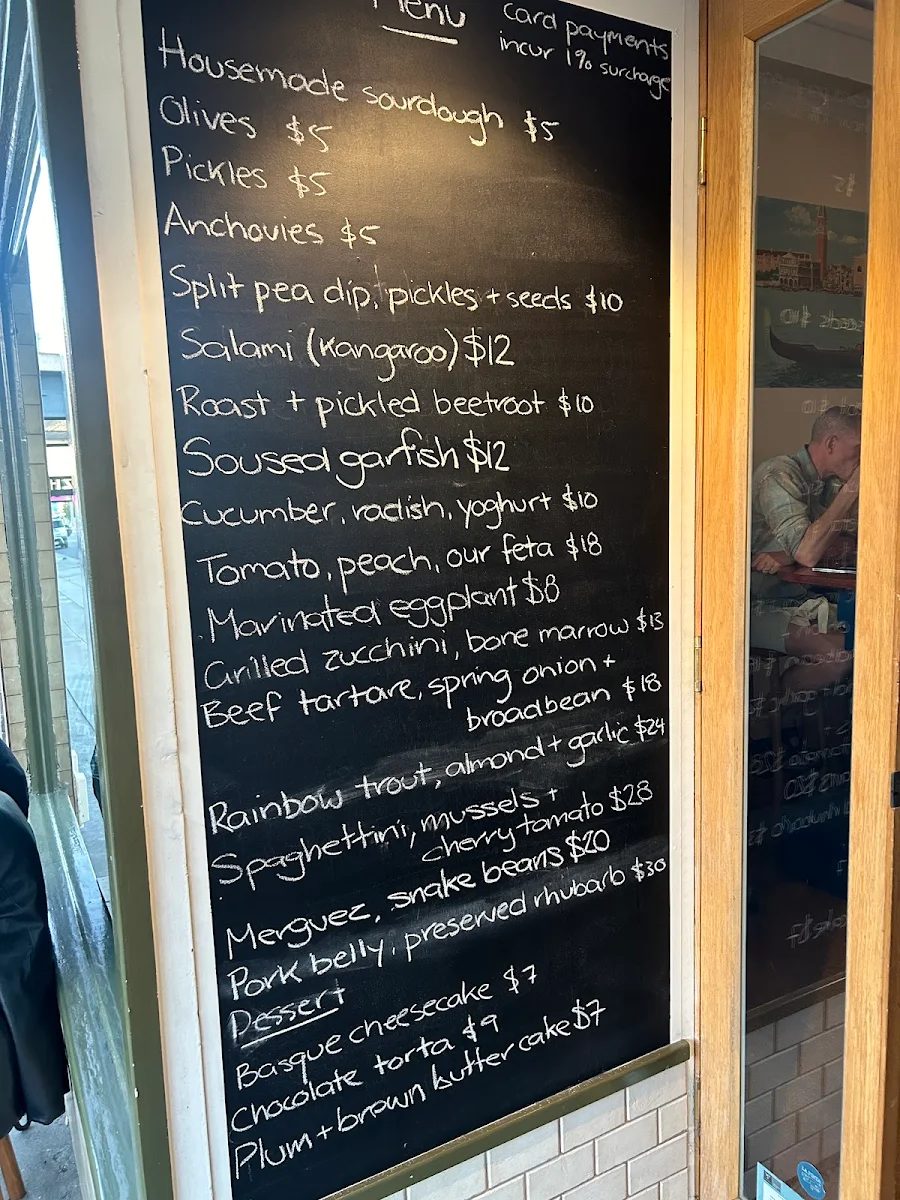 Menu
card payments
incur 1% surcharge
Housemade sourdough $5
Olives $5
Pickles $5
Anchovies $5
Split pea dip, pickles + seeds $10
Salami (Kangaroo) $12
Roast + pickled beetroot $10
Soused garfish $12
Cucumber, radish, yoghurt $10
Tomato, peach, our feta $18
Marinated eggplant $8
Grilled zucchini, bone marrow $13
Beef tartare, spring onion +
broadbean $18
Rainbow trout, almond + garlic $24
Spaghettini, mussels +
cherry tomato $28
Merguez, snake beans $20
Pork belly, preserved rhubarb $30
Dessert
Basque cheesecake $7
Chocolate torta $9
Plum + brown butter cake $7